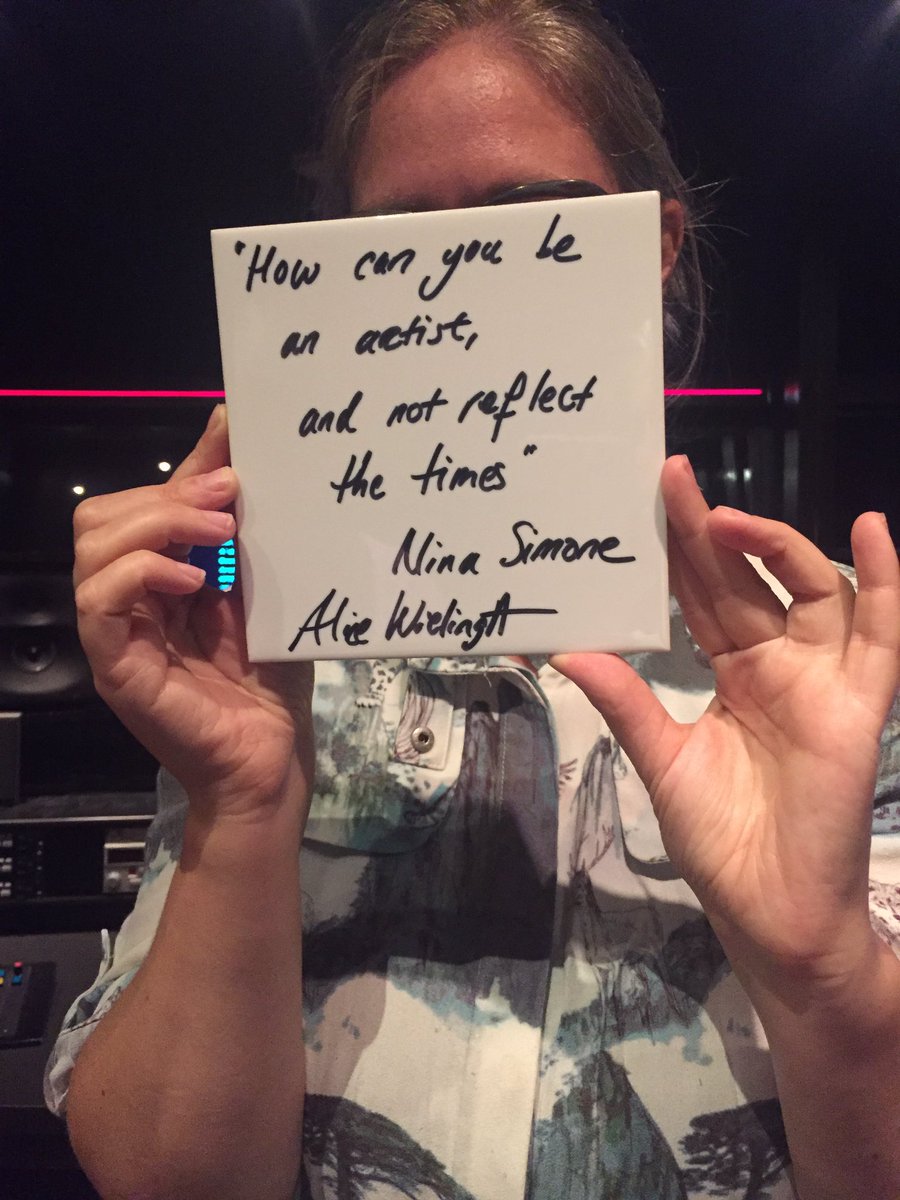 "How can you be
an artist,
and not reflect
the times"
Nina Simone